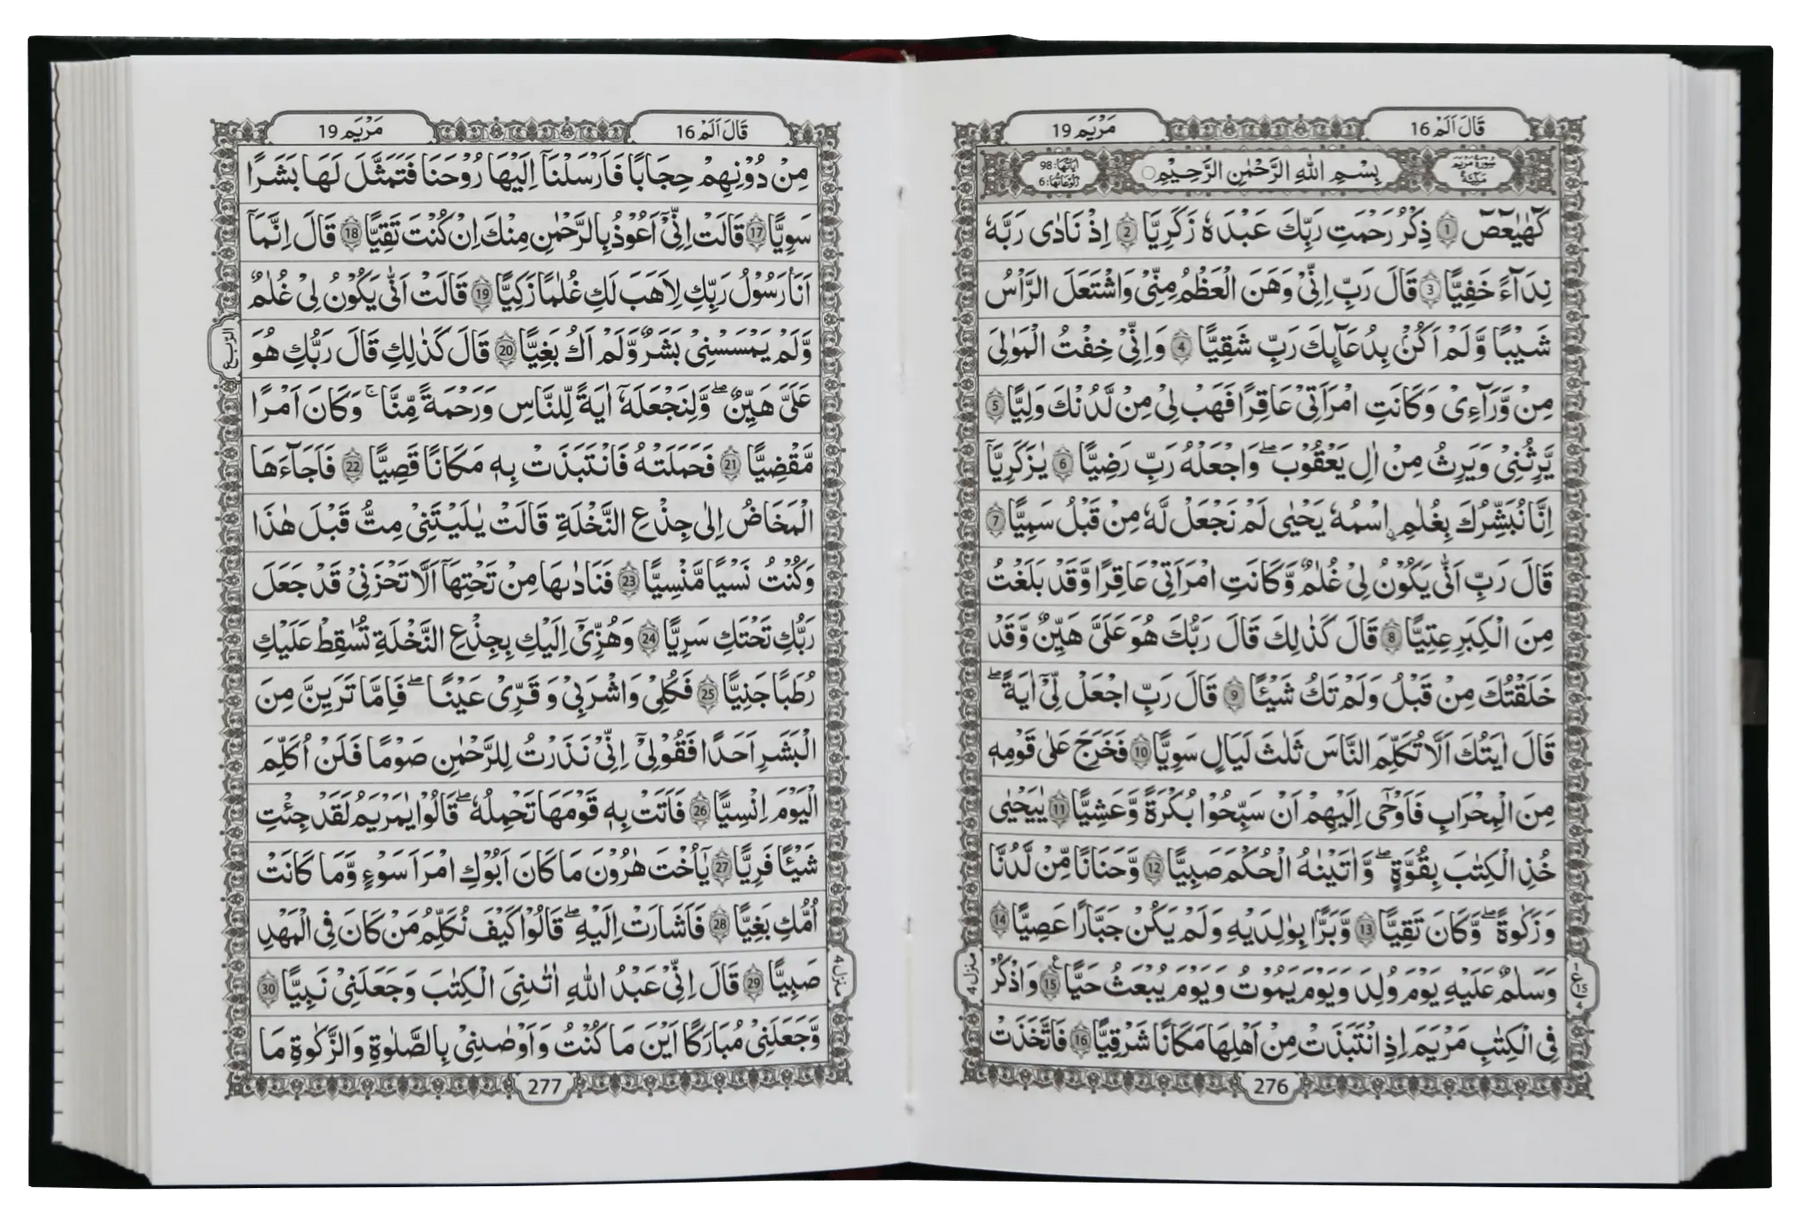 قَالَ اَلَمْ 16
مَرْيَم 19
سُوْرَةُ مَرْيَمَ مَكِّيَّةٌ
بِسْمِ اللّٰهِ الرَّحْمٰنِ الرَّحِيْمِ
اٰيَاتُهَا: 98
رُكُوْعَاتُهَا: 6
كٓهٰيٰعٓصٓ 1 ذِكْرُ رَحْمَتِ رَبِّكَ عَبْدَهٗ زَكَرِيَّا 2 اِذْ نَادٰى رَبَّهٗ
نِدَآءً خَفِيًّا 3 قَالَ رَبِّ اِنِّيْ وَهَنَ الْعَظْمُ مِنِّيْ وَاشْتَعَلَ الرَّاْسُ
شَيْبًا وَّلَمْ اَكُنْۢ بِدُعَآئِكَ رَبِّ شَقِيًّا 4 وَاِنِّيْ خِفْتُ الْمَوَالِيَ
مِنْ وَّرَآءِيْ وَكَانَتِ امْرَاَتِيْ عَاقِرًا فَهَبْ لِيْ مِنْ لَّدُنْكَ وَلِيًّا 5
يَّرِثُنِيْ وَيَرِثُ مِنْ اٰلِ يَعْقُوْبَ ۖ وَاجْعَلْهُ رَبِّ رَضِيًّا 6 يٰزَكَرِيَّآ
اِنَّا نُبَشِّرُكَ بِغُلٰمِ ِۨاسْمُهٗ يَحْيٰى لَمْ نَجْعَلْ لَّهٗ مِنْ قَبْلُ سَمِيًّا 7
قَالَ رَبِّ اَنّٰى يَكُوْنُ لِيْ غُلٰمٌ وَّكَانَتِ امْرَاَتِيْ عَاقِرًا وَّقَدْ بَلَغْتُ
مِنَ الْكِبَرِ عِتِيًّا 8 قَالَ كَذٰلِكَ قَالَ رَبُّكَ هُوَ عَلَيَّ هَيِّنٌ وَّقَدْ
خَلَقْتُكَ مِنْ قَبْلُ وَلَمْ تَكُ شَيْئًا 9 قَالَ رَبِّ اجْعَلْ لِّيْٓ اٰيَةً ۖ
قَالَ اٰيَتُكَ اَلَّا تُكَلِّمَ النَّاسَ ثَلٰثَ لَيَالٍ سَوِيًّا 10 فَخَرَجَ عَلٰى قَوْمِهٖ
مِنَ الْمِحْرَابِ فَاَوْحٰٓى اِلَيْهِمْ اَنْ سَبِّحُوْا بُكْرَةً وَّعَشِيًّا 11 يٰيَحْيٰى
خُذِ الْكِتٰبَ بِقُوَّةٍ ۖ وَّاٰتَيْنٰهُ الْحُكْمَ صَبِيًّا 12 وَّحَنَانًا مِّنْ لَّدُنَّا
وَزَكٰوةً ۖ وَّكَانَ تَقِيًّا 13 وَّبَرًّا بِۢوَالِدَيْهِ وَلَمْ يَكُنْ جَبَّارًا عَصِيًّا 14
وَسَلٰمٌ عَلَيْهِ يَوْمَ وُلِدَ وَيَوْمَ يَمُوْتُ وَيَوْمَ يُبْعَثُ حَيًّا 15 وَاذْكُرْ
فِي الْكِتٰبِ مَرْيَمَ اِذِ انْتَبَذَتْ مِنْ اَهْلِهَا مَكَانًا شَرْقِيًّا 16 فَاتَّخَذَتْ
منزل 4
276
قَالَ اَلَمْ 16
مَرْيَم 19
مِنْ دُوْنِهِمْ حِجَابًا فَاَرْسَلْنَآ اِلَيْهَا رُوْحَنَا فَتَمَثَّلَ لَهَا بَشَرًا
سَوِيًّا 17 قَالَتْ اِنِّيْٓ اَعُوْذُ بِالرَّحْمٰنِ مِنْكَ اِنْ كُنْتَ تَقِيًّا 18 قَالَ اِنَّمَآ
اَنَا رَسُوْلُ رَبِّكِ لِاَهَبَ لَكِ غُلٰمًا زَكِيًّا 19 قَالَتْ اَنّٰى يَكُوْنُ لِيْ غُلٰمٌ
وَّلَمْ يَمْسَسْنِيْ بَشَرٌ وَّلَمْ اَكُ بَغِيًّا 20 قَالَ كَذٰلِكِ قَالَ رَبُّكِ هُوَ
عَلَيَّ هَيِّنٌ ۖ وَّلِنَجْعَلَهٗٓ اٰيَةً لِّلنَّاسِ وَرَحْمَةً مِّنَّا ۚ وَكَانَ اَمْرًا
مَّقْضِيًّا 21 فَحَمَلَتْهُ فَانْتَبَذَتْ بِهٖ مَكَانًا قَصِيًّا 22 فَاَجَآءَهَا
الْمَخَاضُ اِلٰى جِذْعِ النَّخْلَةِ قَالَتْ يٰلَيْتَنِيْ مِتُّ قَبْلَ هٰذَا
وَكُنْتُ نَسْيًا مَّنْسِيًّا 23 فَنَادٰىهَا مِنْ تَحْتِهَآ اَلَّا تَحْزَنِيْ قَدْ جَعَلَ
رَبُّكِ تَحْتَكِ سَرِيًّا 24 وَهُزِّيْٓ اِلَيْكِ بِجِذْعِ النَّخْلَةِ تُسٰقِطْ عَلَيْكِ
رُطَبًا جَنِيًّا 25 فَكُلِيْ وَاشْرَبِيْ وَقَرِّيْ عَيْنًا ۖ فَاِمَّا تَرَيِنَّ مِنَ
الْبَشَرِ اَحَدًا فَقُوْلِيْٓ اِنِّيْ نَذَرْتُ لِلرَّحْمٰنِ صَوْمًا فَلَنْ اُكَلِّمَ
الْيَوْمَ اِنْسِيًّا 26 فَاَتَتْ بِهٖ قَوْمَهَا تَحْمِلُهٗ ۖ قَالُوْا يٰمَرْيَمُ لَقَدْ جِئْتِ
شَيْئًا فَرِيًّا 27 يٰٓاُخْتَ هٰرُوْنَ مَا كَانَ اَبُوْكِ امْرَاَ سَوْءٍ وَّمَا كَانَتْ
اُمُّكِ بَغِيًّا 28 فَاَشَارَتْ اِلَيْهِ ۖ قَالُوْا كَيْفَ نُكَلِّمُ مَنْ كَانَ فِي الْمَهْدِ
صَبِيًّا 29 قَالَ اِنِّيْ عَبْدُ اللّٰهِ اٰتٰىنِيَ الْكِتٰبَ وَجَعَلَنِيْ نَبِيًّا 30
وَّجَعَلَنِيْ مُبَارَكًا اَيْنَ مَا كُنْتُ وَاَوْصٰىنِيْ بِالصَّلٰوةِ وَالزَّكٰوةِ مَا
الربع
منزل 4
277